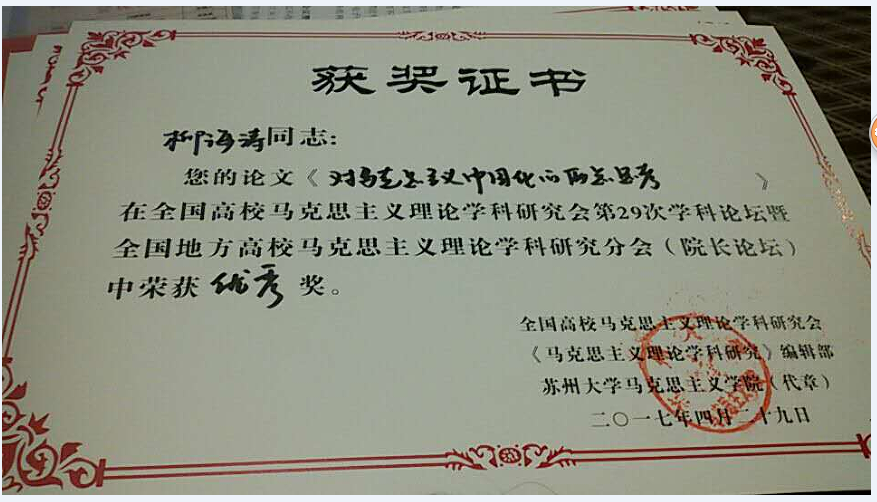 获奖证书
柳海涛同志:
您的论文《对马克思主义中国化的两点思考》
在全国高校马克思主义理论学科研究会第29次学科论坛暨
全国地方高校马克思主义理论学科研究分会（院长论坛）
中荣获优秀奖。
全国高校马克思主义理论学科研究会
《马克思主义理论学科研究》编辑部
苏州大学马克思主义学院（代章）
二〇一七年四月二十九日